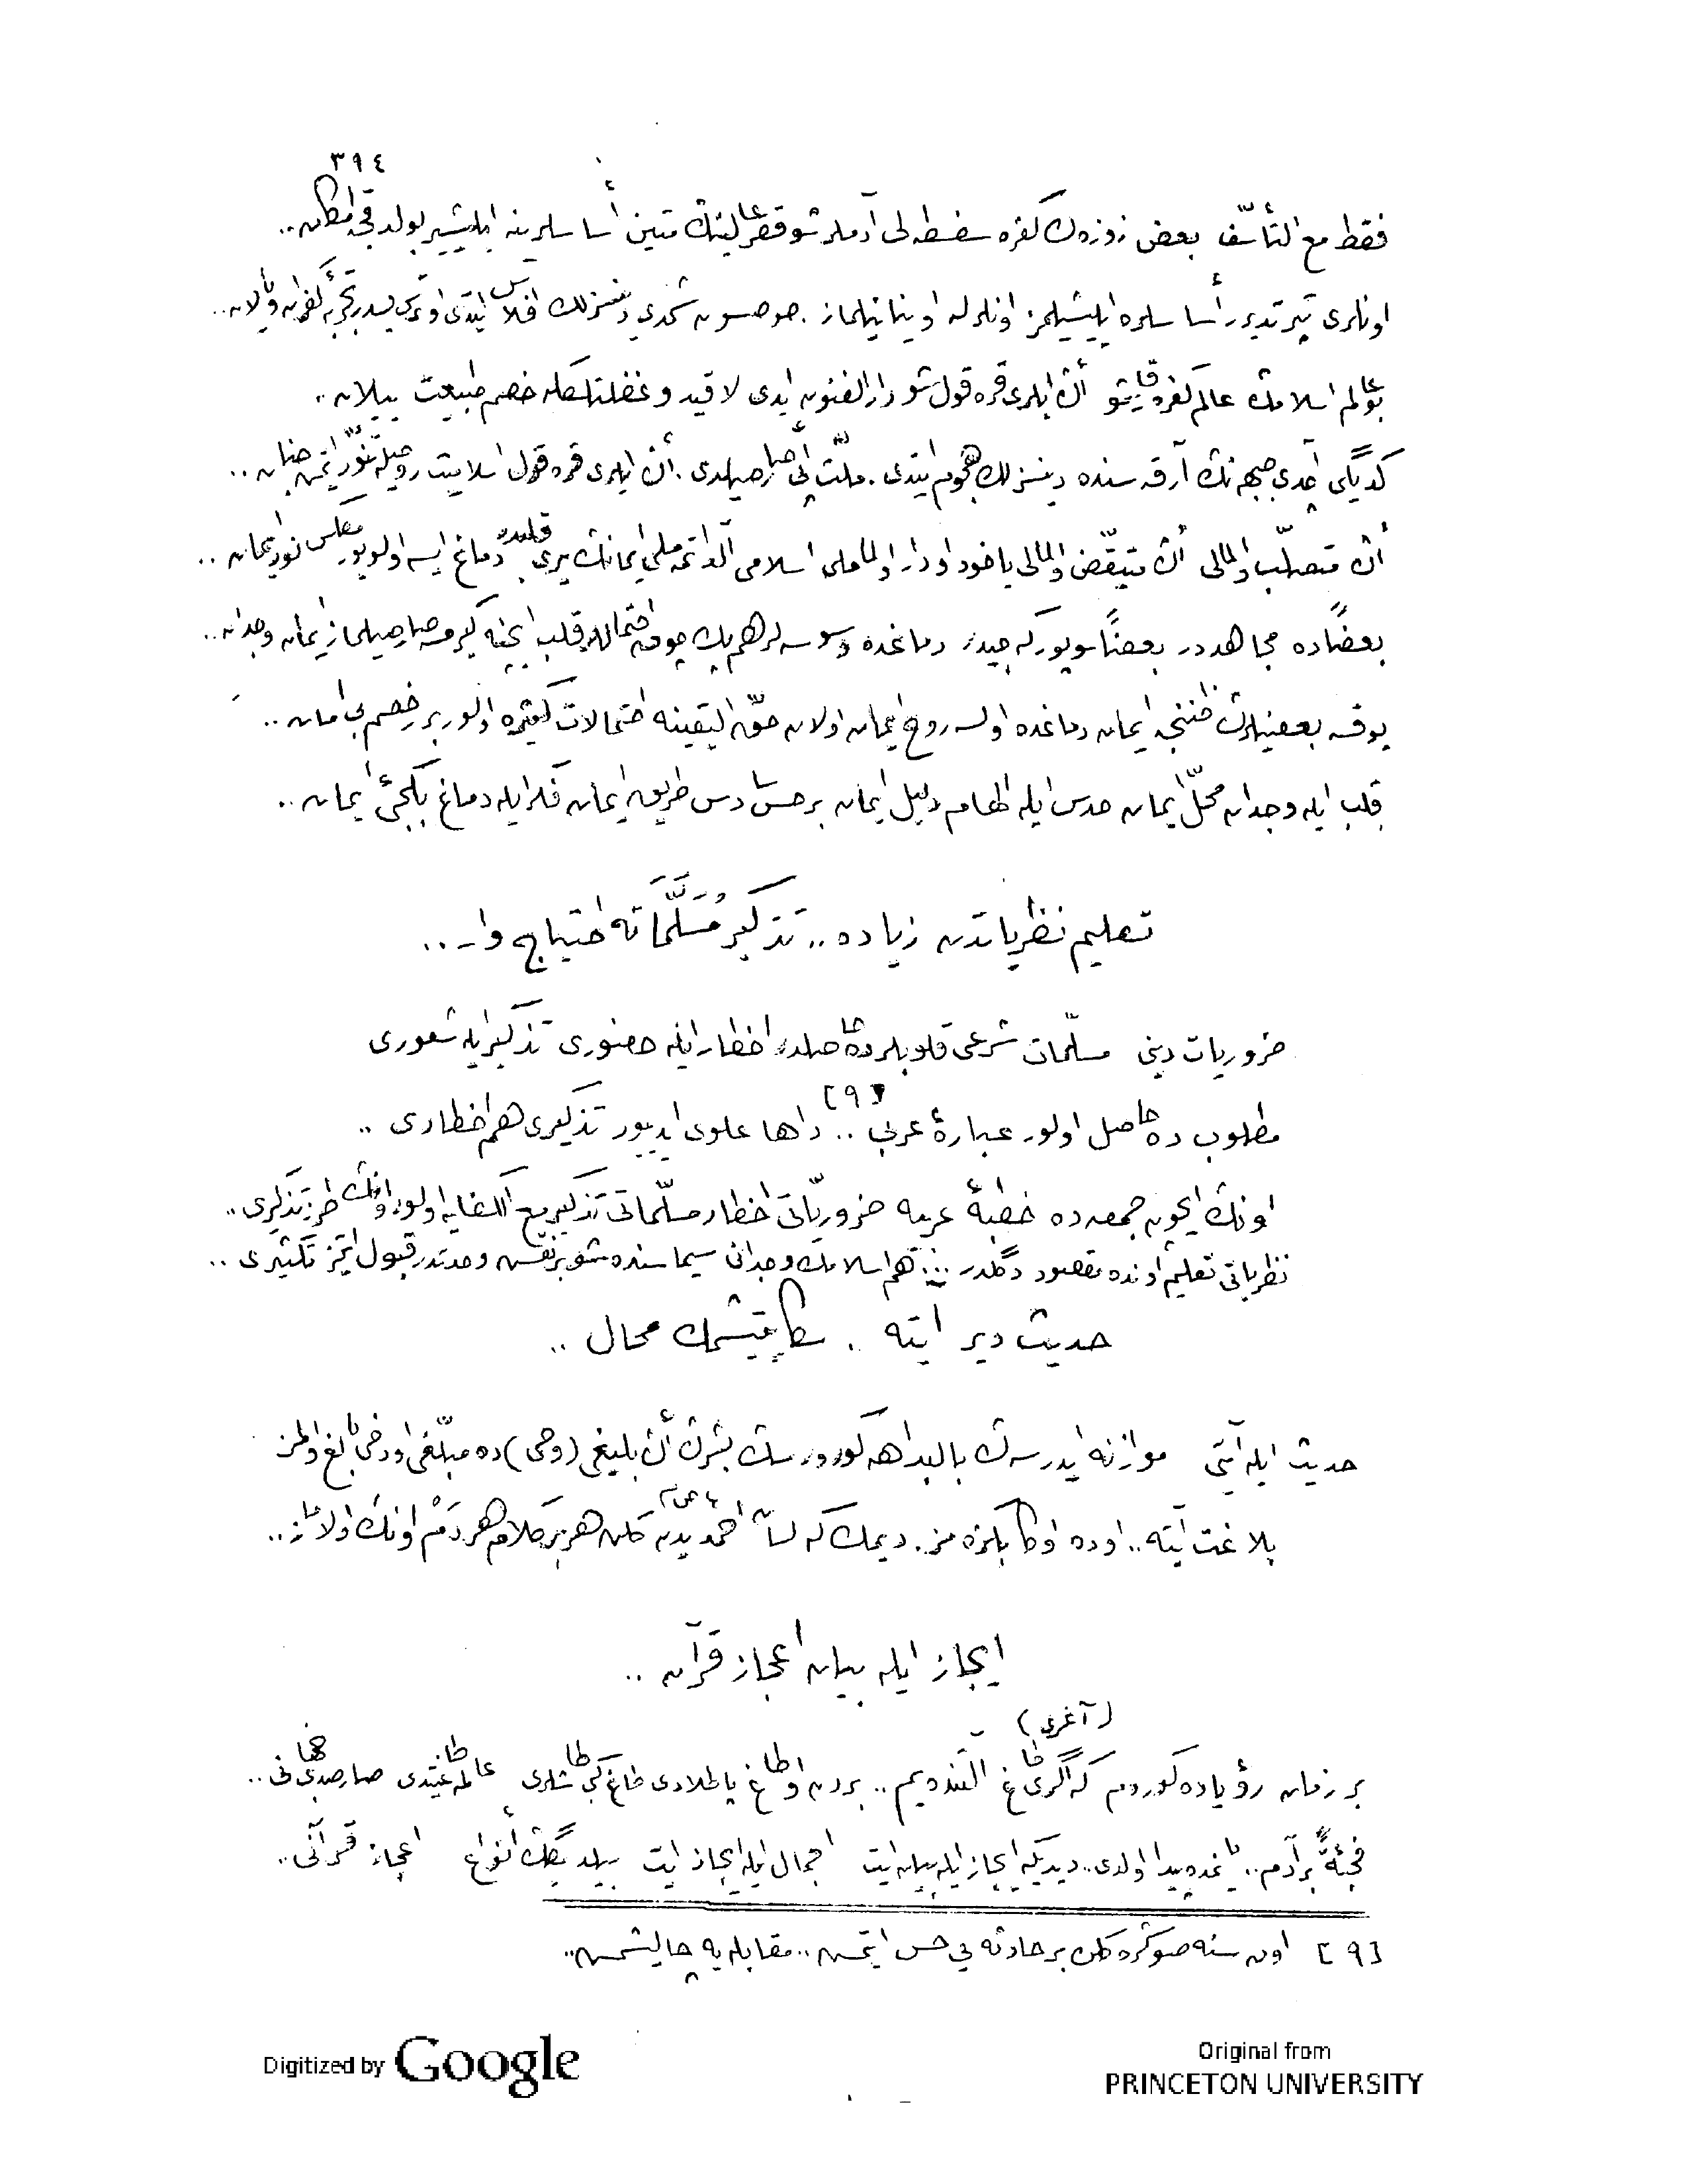 ٣٩٤
فقط مع التأسّف بعض زوزه‌ك كفره سفسطه‌لى آدملر شو قصر عالينك متين أساسلرينه ايليشير بولدقجه امكان..
اونلرى تپرتدير أساسلره ايليشيلمز اونلرله اوينانيلماز. صوصسون شمدى دينسزلك افلاس ايتدى او
بو عالم اسلامك عالم كفره قارشو أڭ ايلرى قره‌قول شو دار الفنون ايدى لاقيد و غفلتلكله خصم طبيعت ييلان..
كديگى آچدى جبهه‌نك آرقه‌سنده دينسزلك هجوم ايتدى. ملّت پك صارصيلدى. أڭ ايلرى قره‌قول اسلاميت روحيله تنوّر ايتمش جنان..
أڭ متصلّب اولمالى أڭ متيقّض اولمالى ياخود او دار اولماملى اسلامى آلداتمه‌ملى ايمانك يرى قلبدر دماغ ايسه اولويور معكس نور ايمان..
بعضًا ده مجاهددر بعضًا سوپورگه‌جيدر دماغده وسوسه‌لر هم پك چوق احتماللر قلب ايچنه گيرمسه صارصيلماز ايمان وجدان..
يوقسه بعضيلرك ظننجه ايمان دماغده اولسه روح ايمان اولان حقّ اليقينه احتمالات كثيره اولور بر خصم بى امان..
قلب ايله وجدان محلّ ايمان حدس ايله الهام دليل ايمان بر حسّ سادس طريق ايمان فكر ايله دماغ بكجئ ايمان..
تعليم نظرياتدن زياده.. تذكير مُسَلَّمَاته احتياج وار..
ضروريات دينى مسلّمات شرعى قلوبلرده حاصلدر اخطار ايله حضورى تذكير ايله شعورى
[٩]
مطلوب ده حاصل اولور عبارۀ عربى.. داها علوى ايديور تذكيرى هم اخطارى..
اونك ايچون جمعه‌ده خطبۀ عربيه ضرورياتى اخطار مسلّماتى تذكير مع الكفايه اولور اونك طرز تذكيرى..
نظرياتى تعليم اونده مقصود دگلدر... هم اسلامك وجدانى سيماسنده شو بر نقش وحدتدر قبول ايتمز تكثيرى..
حديث دير آيته. سكا يتيشمك محال..
حديث ايله آيتى موازنه ايدرسه‌ك بالبداهه گورورسك بشرك أڭ بليغى (وحى) ده مبلّغى او دخى بالغ اولمز
بلاغت آيته.. او ده اوكا بكزه‌مز. ديمك كه لسان احمديدن گلن هر بر كلام هر دم اونك اولاماز..
ايجاز ايله بيان اعجاز قرآن..
(آغرى)
بر زمان رؤياده گوردم كه آگرى طاغ آلتنده‌يم.. بردن او طاغ پاطلادى طاغ گبى طاشلرى عالمه طاغيتدى صارصدى جهانى..
فجئةً بر آدم.. يانمده پيدا اولدى.. ديدى‌كه ايجاز ايله بيان ايت اجمال ايله ايجاز ايت بيلديگك أنواع اعجاز قرآنى..
[٩] اون سنه صوكره گلن بر حادثه‌يى حس ايتمش.. مقابله‌يه چاليشمش..
Digitized by Google
Original from
PRINCETON UNIVERSITY